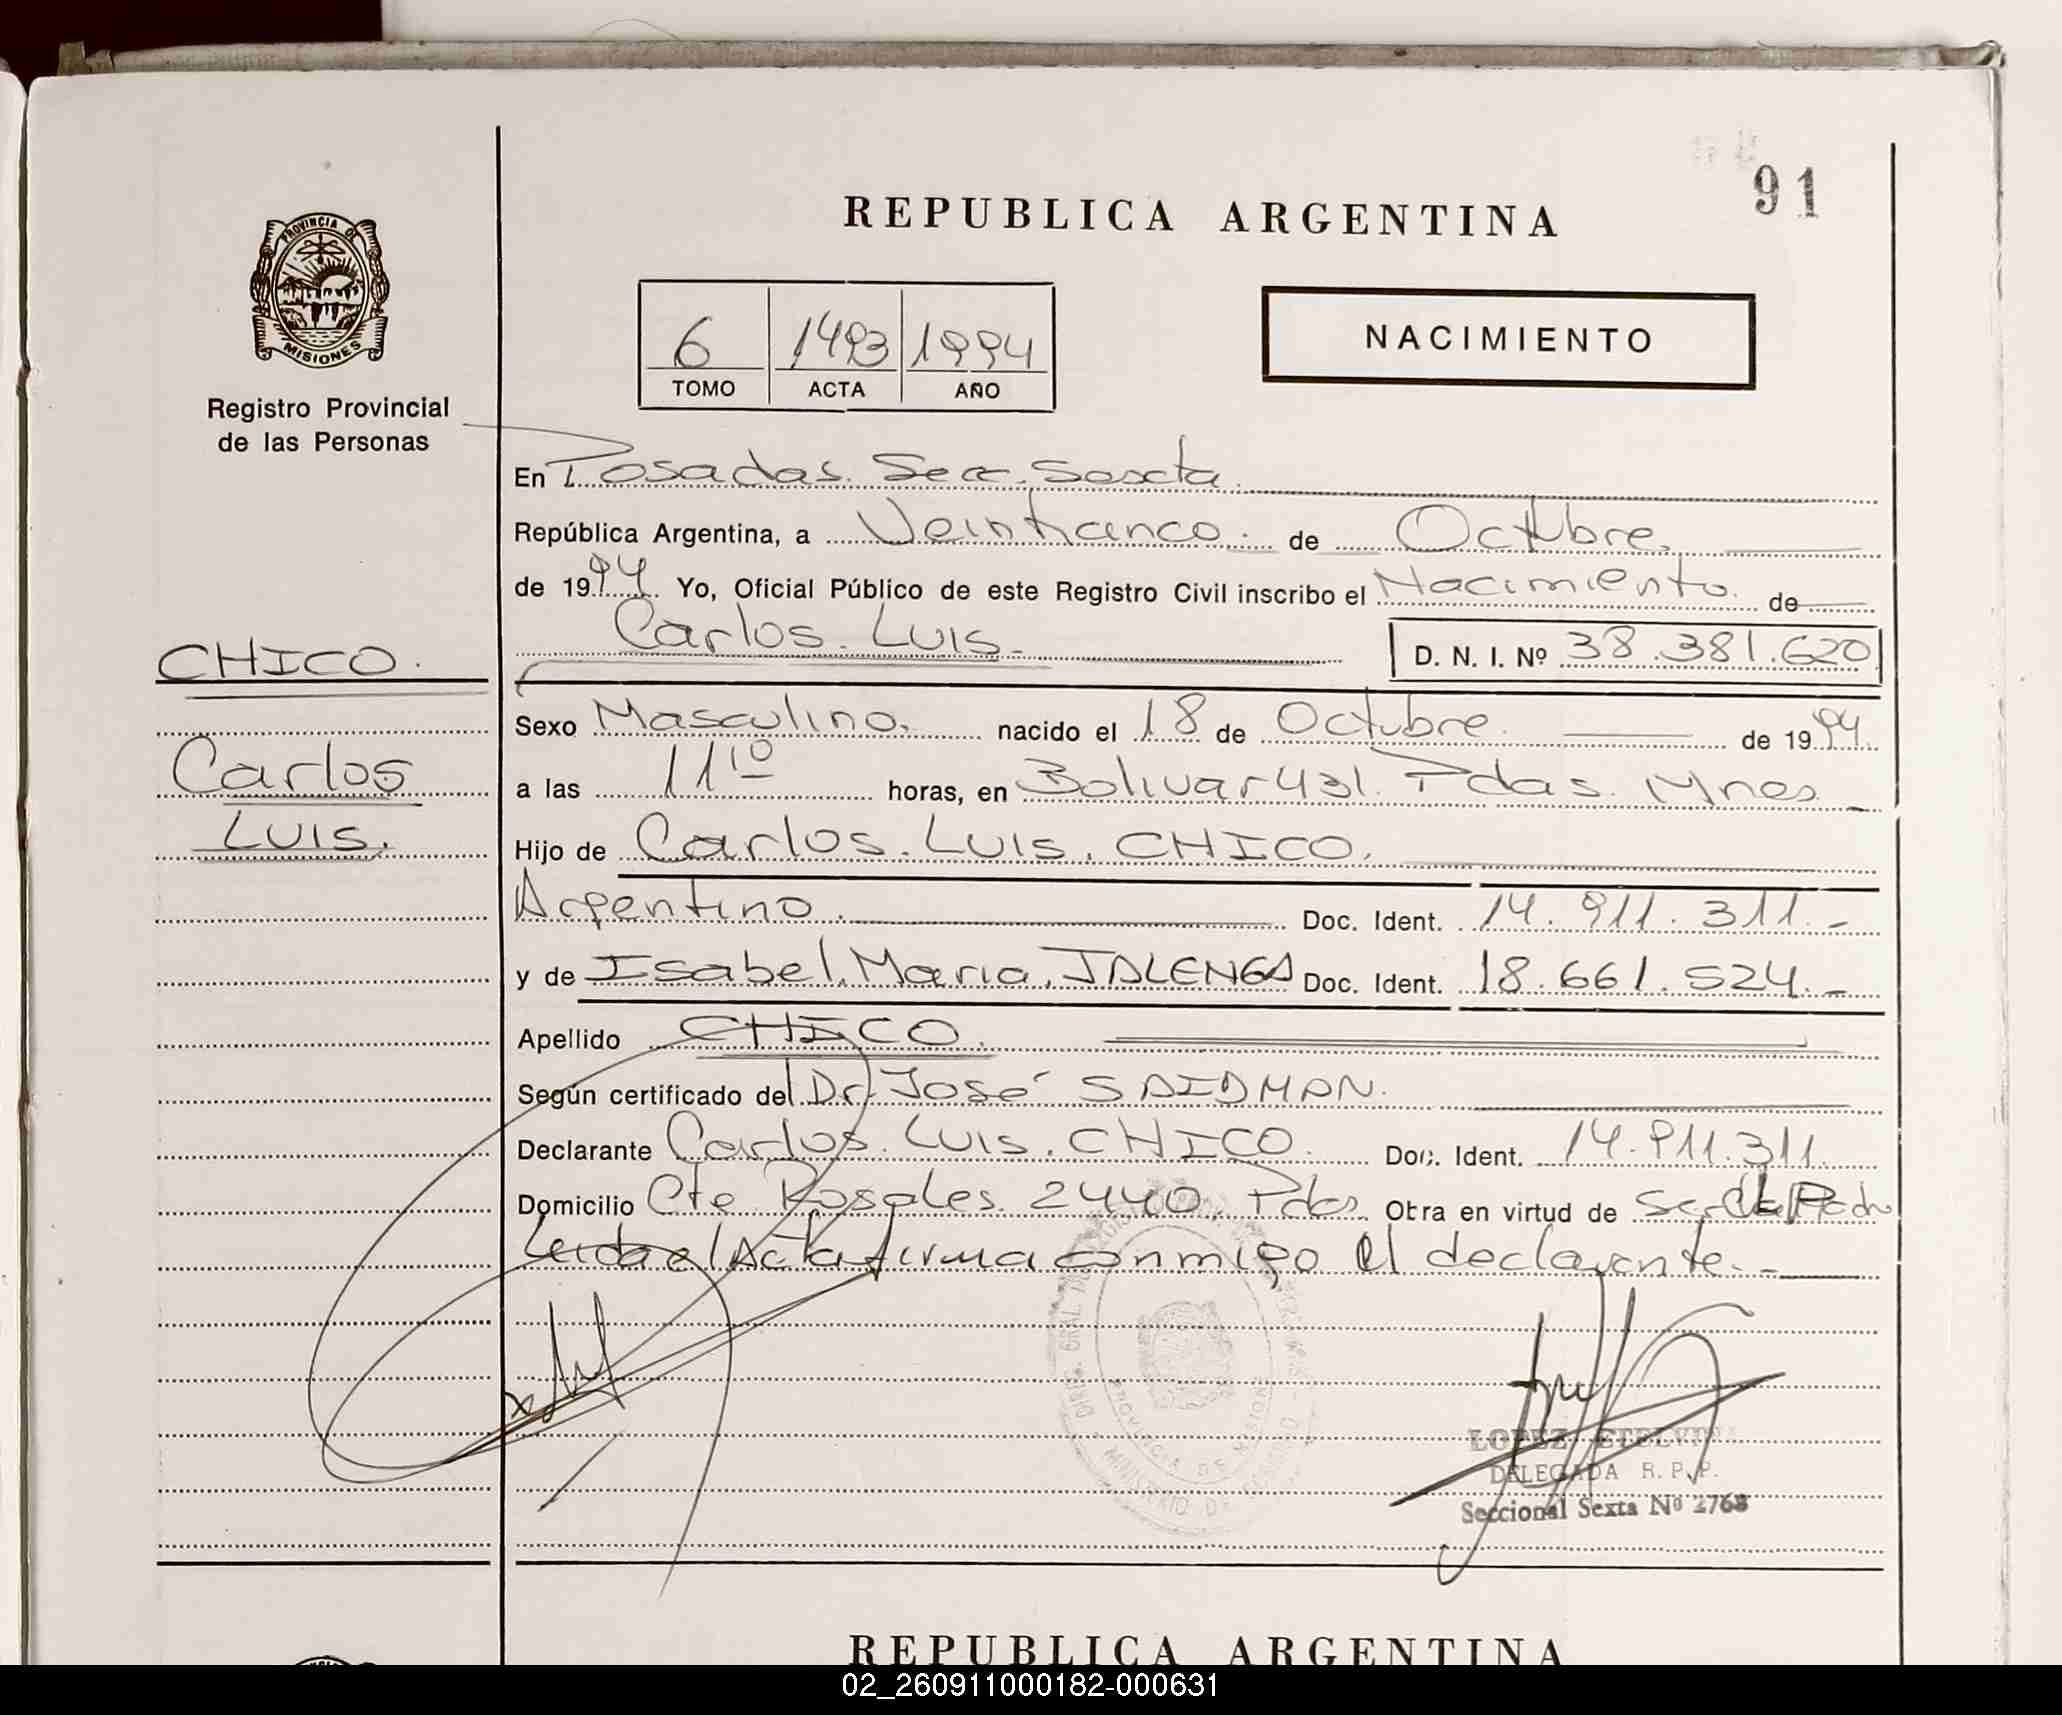 91
REPUBLICA ARGENTINA
PROVINCIA DE
MISIONES
Registro Provincial
de las Personas
6 1493 1994
TOMO ACTA AÑO
NACIMIENTO
En Posadas. Secc. Sexta.
República Argentina, a Veinticinco. de Octubre.
de 1994. Yo, Oficial Público de este Registro Civil inscribo el Nacimiento. de
Carlos. Luis.
D. N. I. Nº 38.381.620
CHICO.
Carlos
Luis.
Sexo Masculino. nacido el 18 de Octubre. de 1994.
a las 11 10 horas, en Bolivar 431. Pdas. Mnes.
Hijo de Carlos. Luis. CHICO.
Argentino. Doc. Ident. 14.911.311.-
y de Isabel. Maria. JALENGA Doc. Ident. 18.661.524.-
Apellido CHICO.
Según certificado del Dr. José SAIDMAN.
Declarante Carlos. Luis. CHICO. Doc. Ident. 14.911.311.
Domicilio Cte. Rosales. 2440. Pdas. Obra en virtud de ser el Padre
Leida el Acta firma conmigo el declarante.-
LOPEZ ETELVINA
DELEGADA R. P. P.
Seccional Sexta Nº 2768
PROVINCIA DE MISIONES
REPUBLICA ARGENTINA
02_260911000182-000631